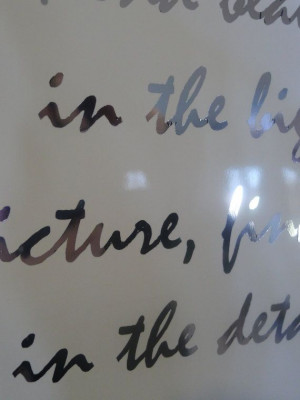 in the big
icture, fin
in the deta